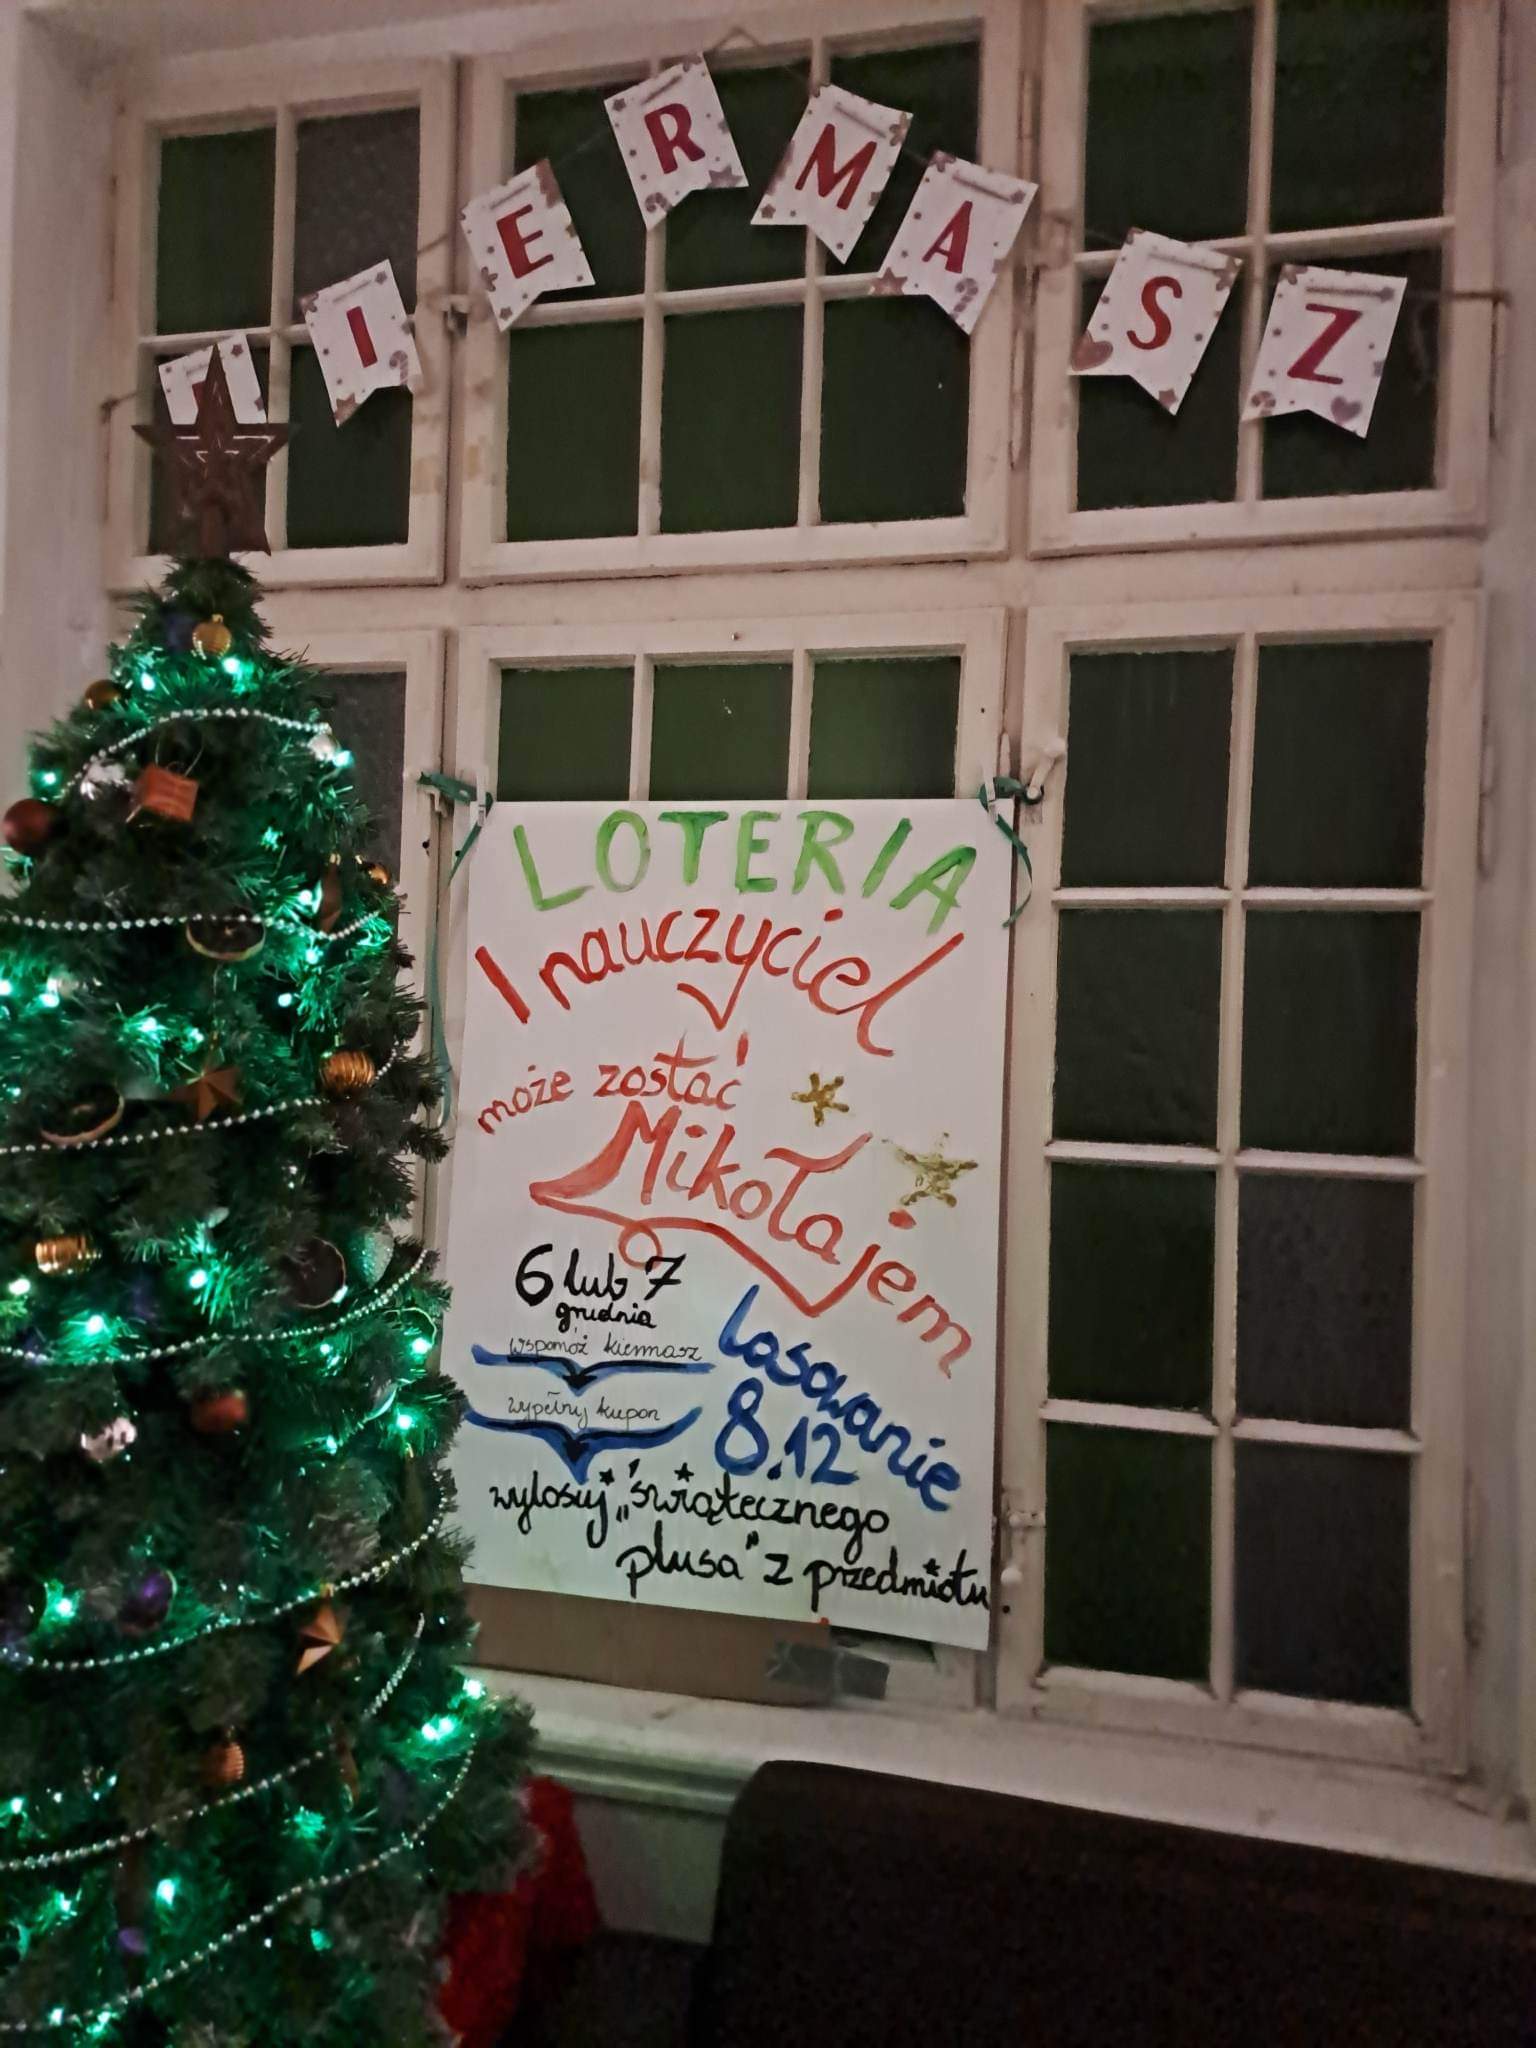 IERMASZ
LOTERIA
I nauczyciel
może zostać
Mikołajem
6 lub 7
grudnia
wspomóż kiermasz
wypełnij kupon
Losowanie
8.12
wylosuj „świątecznego
plusa" z przedmiotu.